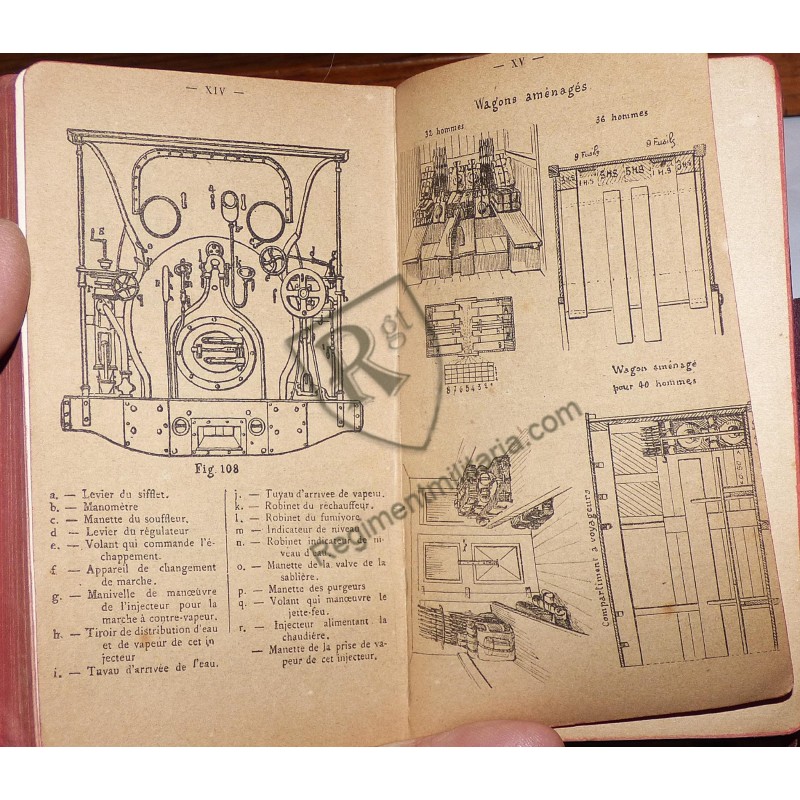 — XIV —
Fig. 108
a. — Levier du sifflet.
b. — Manomètre
c. — Manette du souffleur.
d. — Levier du régulateur
e. — Volant qui commande l'é-
chappement.
f — Appareil de changement
de marche.
g. — Manivelle de manœuvre
de l'injecteur pour la
marche à contre-vapeur.
h. — Tiroir de distribution d'eau
et de vapeur de cet in
jecteur
i. — Tuyau d'arrivée de l'eau.
j. — Tuyau d'arrivee de vapeur.
k. — Robinet du réchauffeur.
l. — Robinet du fumivore
m — Indicateur de niveau
n. — Robinet indicateur de ni-
veau d'eau.
o. — Manette de la valve de la
sablière.
p. — Manette des purgeurs
q. — Volant qui manœuvre le
jette-feu.
r. — Injecteur alimentant la
chaudière.
— Manette de la prise de va-
peur de cet injecteur.
— XV —
Wagons aménagés.
32 hommes
36 hommes
9 Fusils 9 Fusils
3 H.S 1 H.S 5 H.S 5 H.S 1 H.S 3 H.S
8 7 6 5 4 3 2 1
Wagon aménagé
pour 40 hommes
Compartiment à voyageurs
Rgt
Regimentmilitaria.com